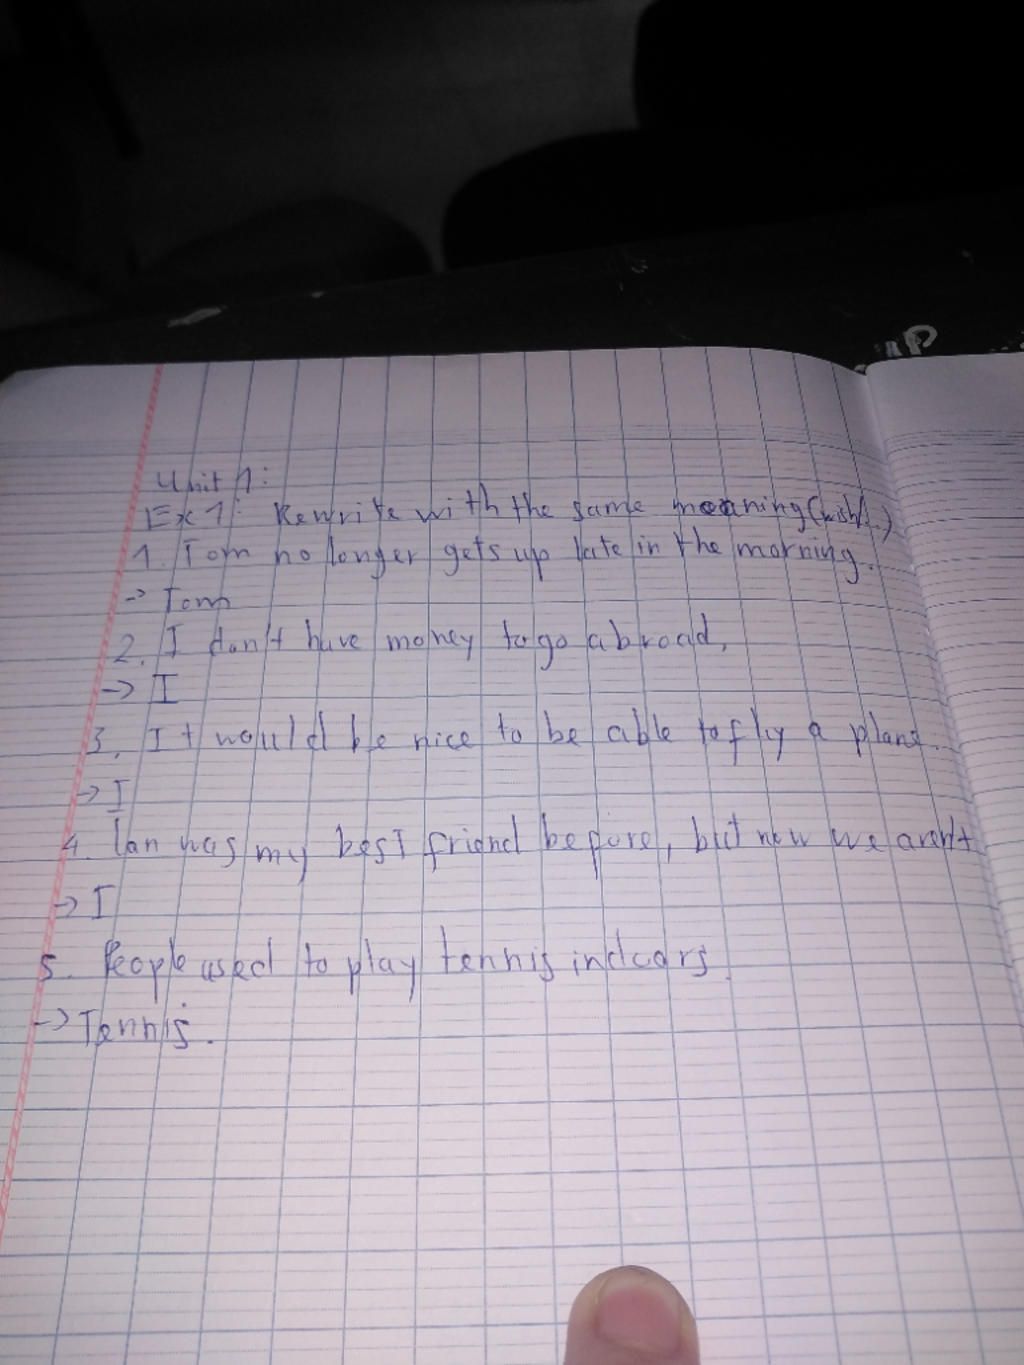 Unit 1:
Ex 1: Rewrite with the same meaning (wish/..)
1. Tom no longer gets up late in the morning.
-> Tom
2. I don't have money to go abroad.
-> I
3. It would be nice to be able to fly a plane.
-> I
4. Lan was my best friend before, but now we aren't
-> I
5. People used to play tennis indoors.
-> Tennis.